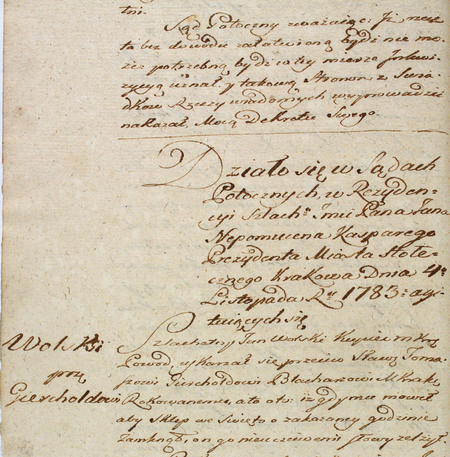 tni.
Sąd Potoczny zważaiąc: Iż rzecz
ta bez dowodu załatwioną bydź nie mo
że potrzebną bydź w tey mierze Inkwi
zycyą uznał, y takową Stronom z Świa
dków Rzeczy wiadomych wyprowadzić
nakazał, Mocą Dekretu Swego.
Działo się w Sądach
Potocznych, w Rezyden-
cyi Szlach: Imci Pana Jana
Nepomucena Kasparego
Prezydenta Miasta Stołe-
cznego Krakowa Dnia 4
Listopada R 1783
się
Wolski
Szlachetny Jan Wolski Kupiec
Powod, uskarżał się przeciw Sławę: Toma
szowi Gircholdowi Blacharzowi
przy
Gircholdowi
o to: iż gdy mu mowił
aby Sklep we Święto o zakazaney godzinie
zamknął, on go nieuczciwemi słowy zelżył